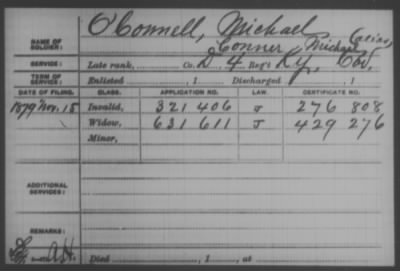 O'Connell, Michael
NAME OF SOLDIER:
Conner Michael (alias)
SERVICE: Late rank, Co. D 4 Reg't Ky. Cav.
TERM OF SERVICE: Enlisted , 1 Discharged , 1
DATE OF FILING. CLASS. APPLICATION NO. LAW. CERTIFICATE NO.
1879 Nov. 15 Invalid, 321 406 J 276 808
Widow, 631 611 J 429 276
Minor,
ADDITIONAL SERVICES:
REMARKS:
Died , 1 , at